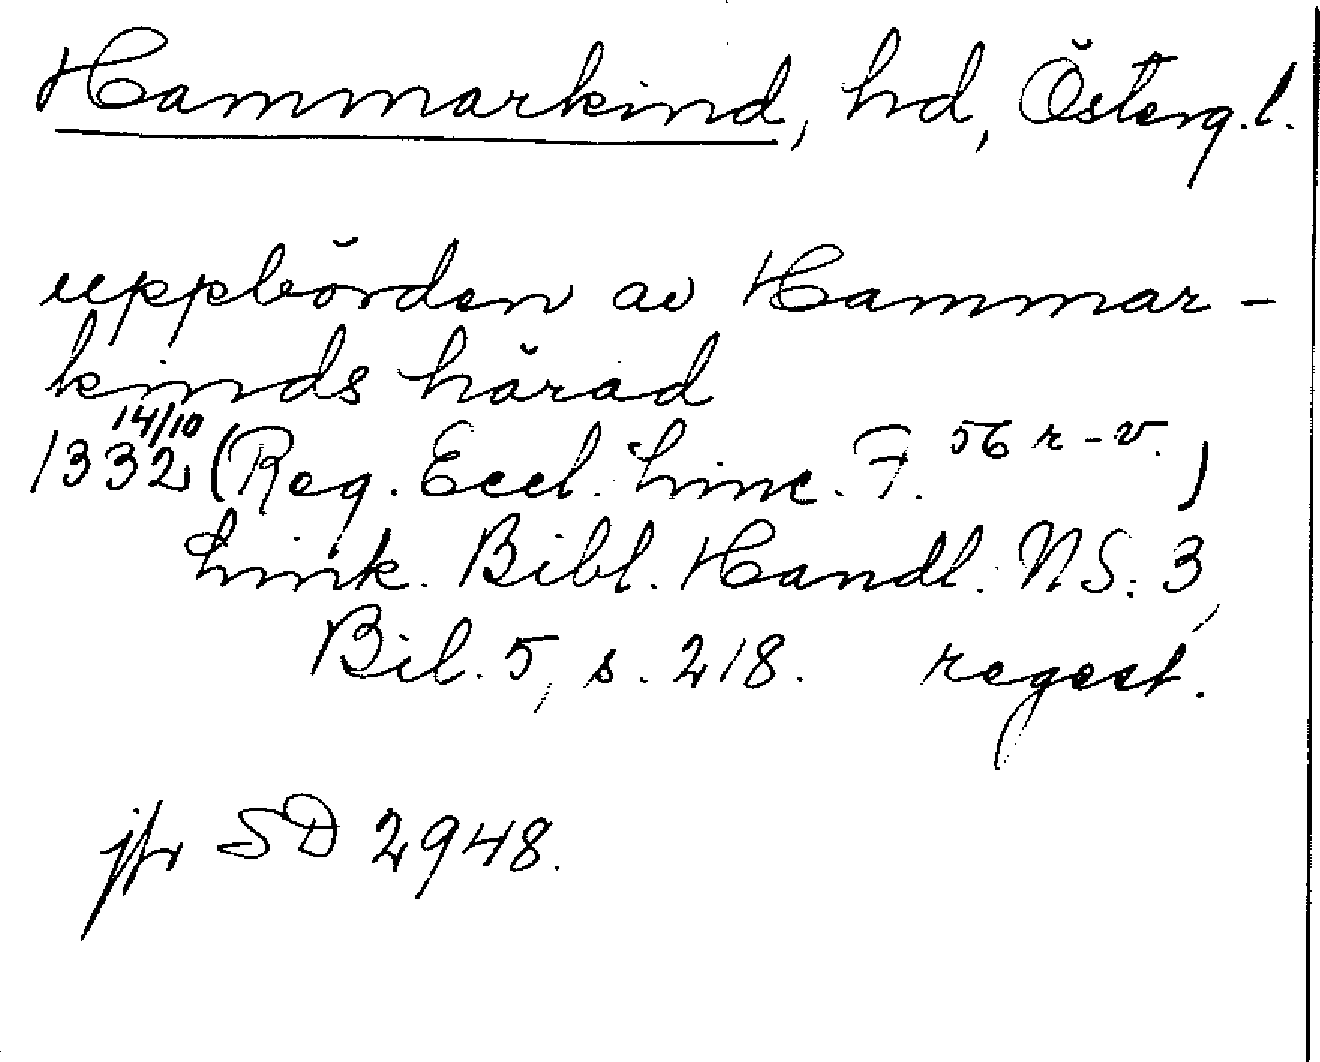 Hammarkind, hd, Österg.l.
uppbörden av Hammar-
kinds härad
14/10
1332 (Reg. Eccl. Linc. F. 56 r-v.)
Link. Bibl. Handl. NS. 3,
Bil. 5, s. 218. regest.
jfr SD 2948.